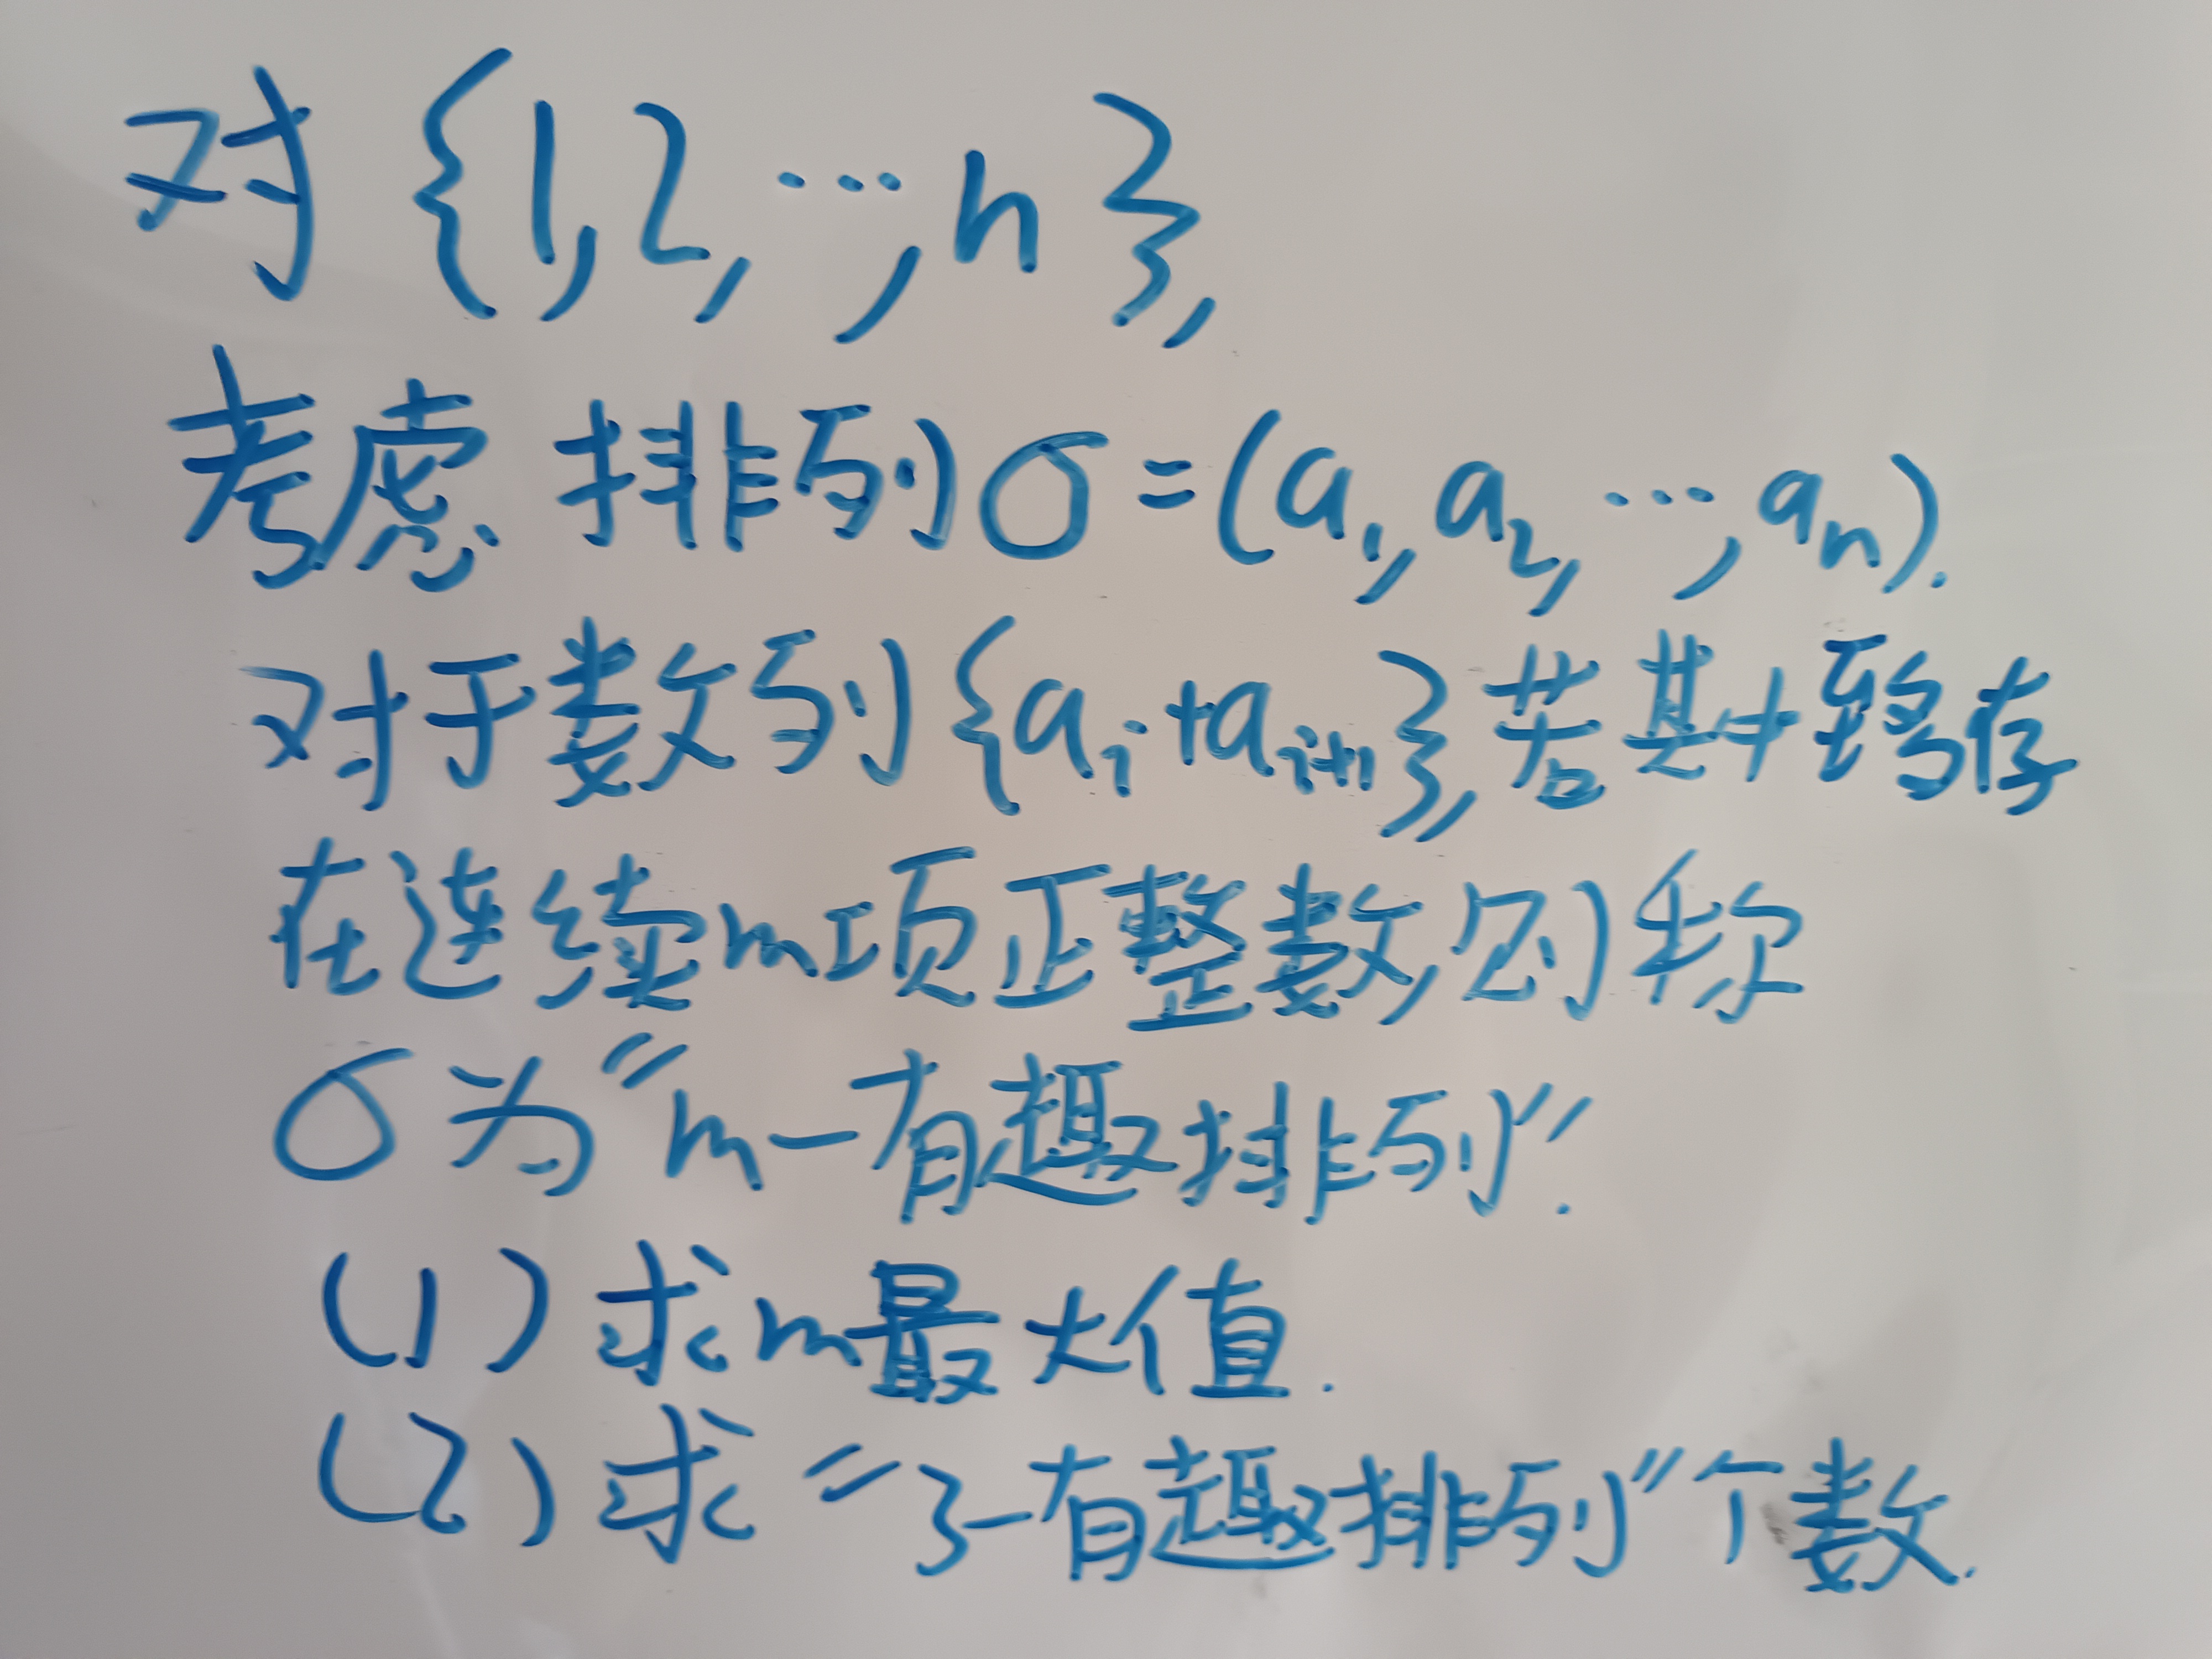 对{1,2,…,n},
考虑排列σ=(a₁,a₂,…,aₙ).
对于数列{aᵢ+aᵢ₊₁},若其中至多存
在连续m项正整数,则称
σ为“m-有趣排列”.
(1)求m最大值.
(2)求“3-有趣排列”个数.